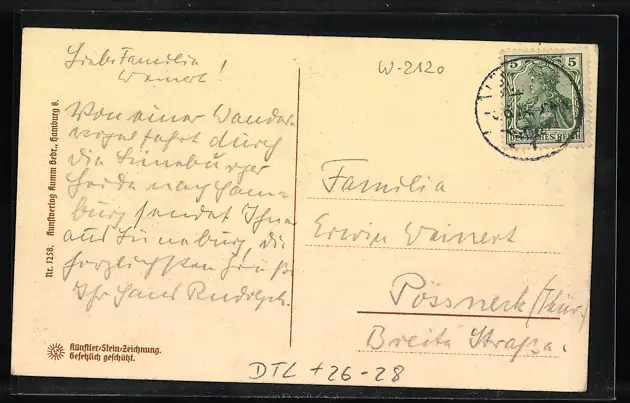 Liebe Familie
Weinert!
Von einer Wander-
vogelfahrt durch
die Lüneburger
Heide nach Ham-
burg sendet Ihnen
aus Lüneburg die
herzlichsten Grüße
Ihr Hans Rudolph.
Nr. 1258. Kunstverlag Kumm Gebr., Hamburg 8.
Künstler-Stein-Zeichnung.
Gesetzlich geschützt.
W-2120
5 5
DEUTSCHES REICH
Familie
Erwin Weinert
Pössneck (Thür.)
Breite Straße.
DTL + 26-28